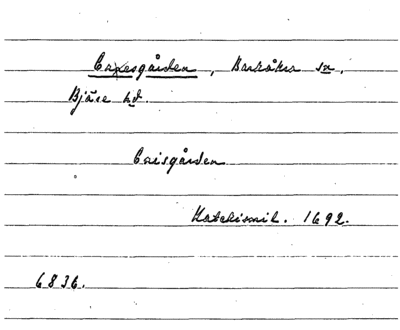 Caxesgården, Barkåkra sn,
Bjäre hd.
Caisgården
Katekismil. 1692.
6836.